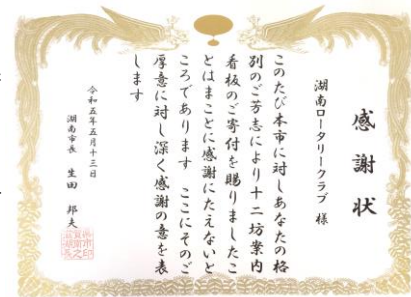 感謝状
湖南ロータリークラブ 様
このたび本市に対しあなたの格
別のご芳志により十二坊案内
看板のご寄付を賜りましたこ
とはまことに感謝にたえないと
ころであります ここにそのご
厚意に対し深く感謝の意を表
します
令和五年五月十三日
湖南市長 生田 邦夫